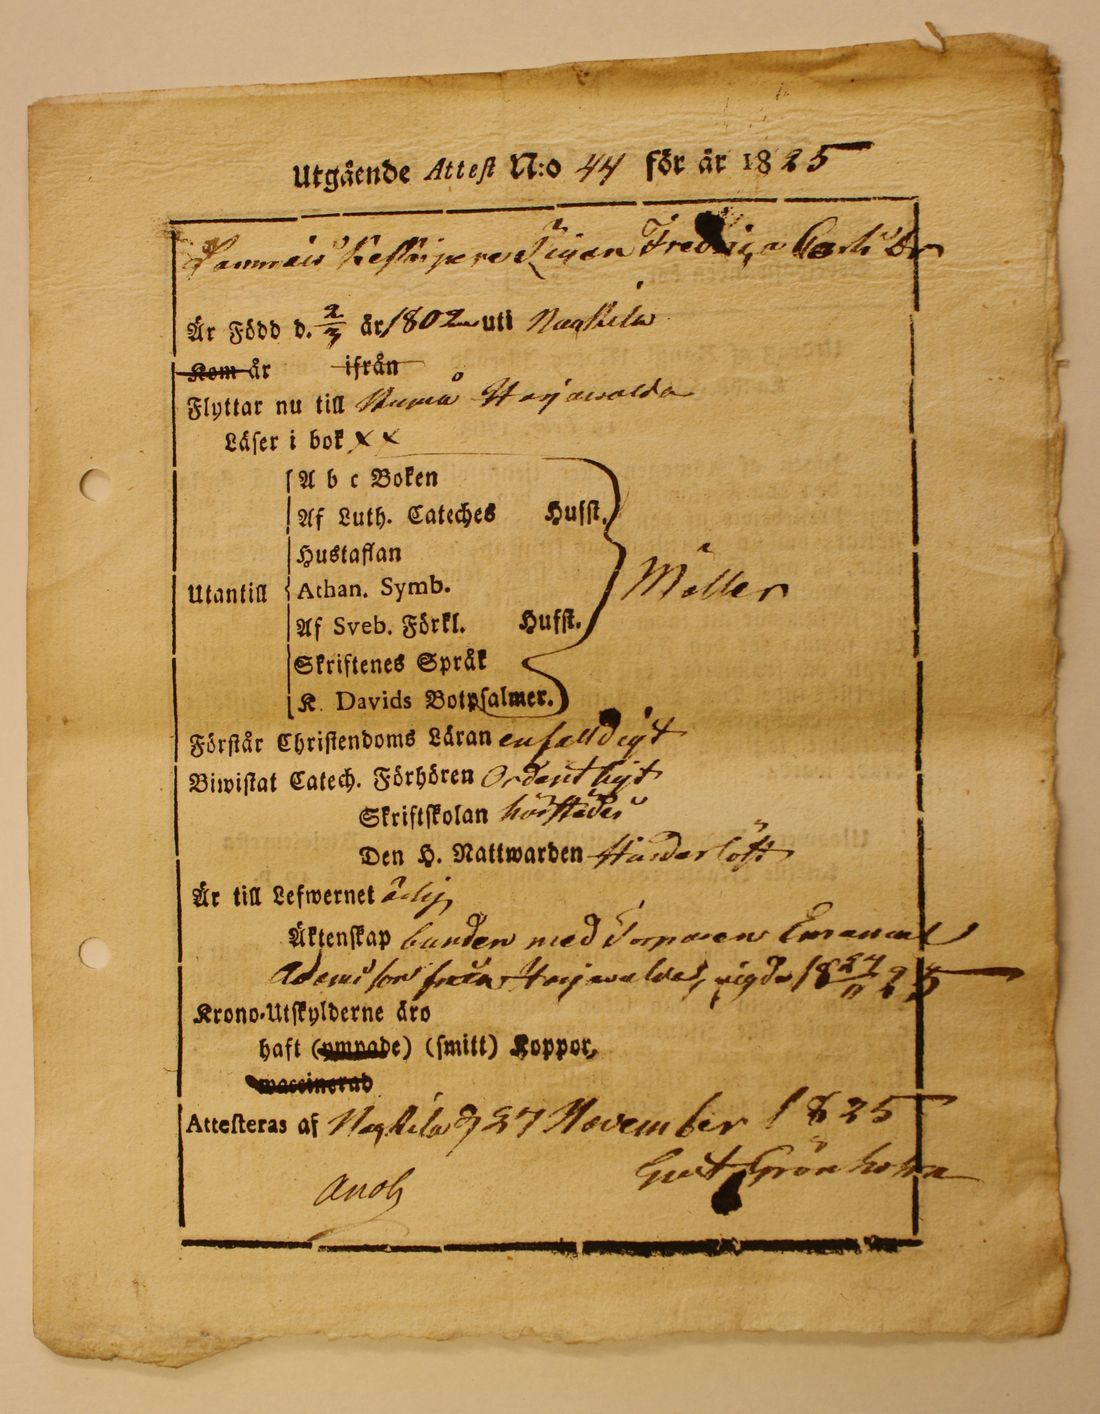 Utgående Attest N:o 44 för år 1825
Fredrica Carls Dr
Är Född d. 2/3 år 1802 uti Nagkila
Kom år ifrån
Flyttar nu till Kumå Harjawalda
Läser i bok x x
A b c Boken
Af Luth. Cateches Hufst.
Hustaflan
Utantill Athan. Symb. Möller
Af Sveb. Förkl. Hufst.
Skriftenes Språk
K. Davids Botpsalmer.
Förstår Christendoms Läran enfalldigt
Biwistat Catech. Förhören Ordentligt
Skriftskolan härstädes
Den H. Nattwarden
Är till Lefwernet ärlig
Äktenskap bunden med Torparen Emanuel
från Harjawalda, vigda 18 27/11 25
Krono-Utskylderne äro
haft (ympade) (smitt) Koppor,
waccinerad
Attesteras af Nagkila d 27 November 1825
Gust Grönholm